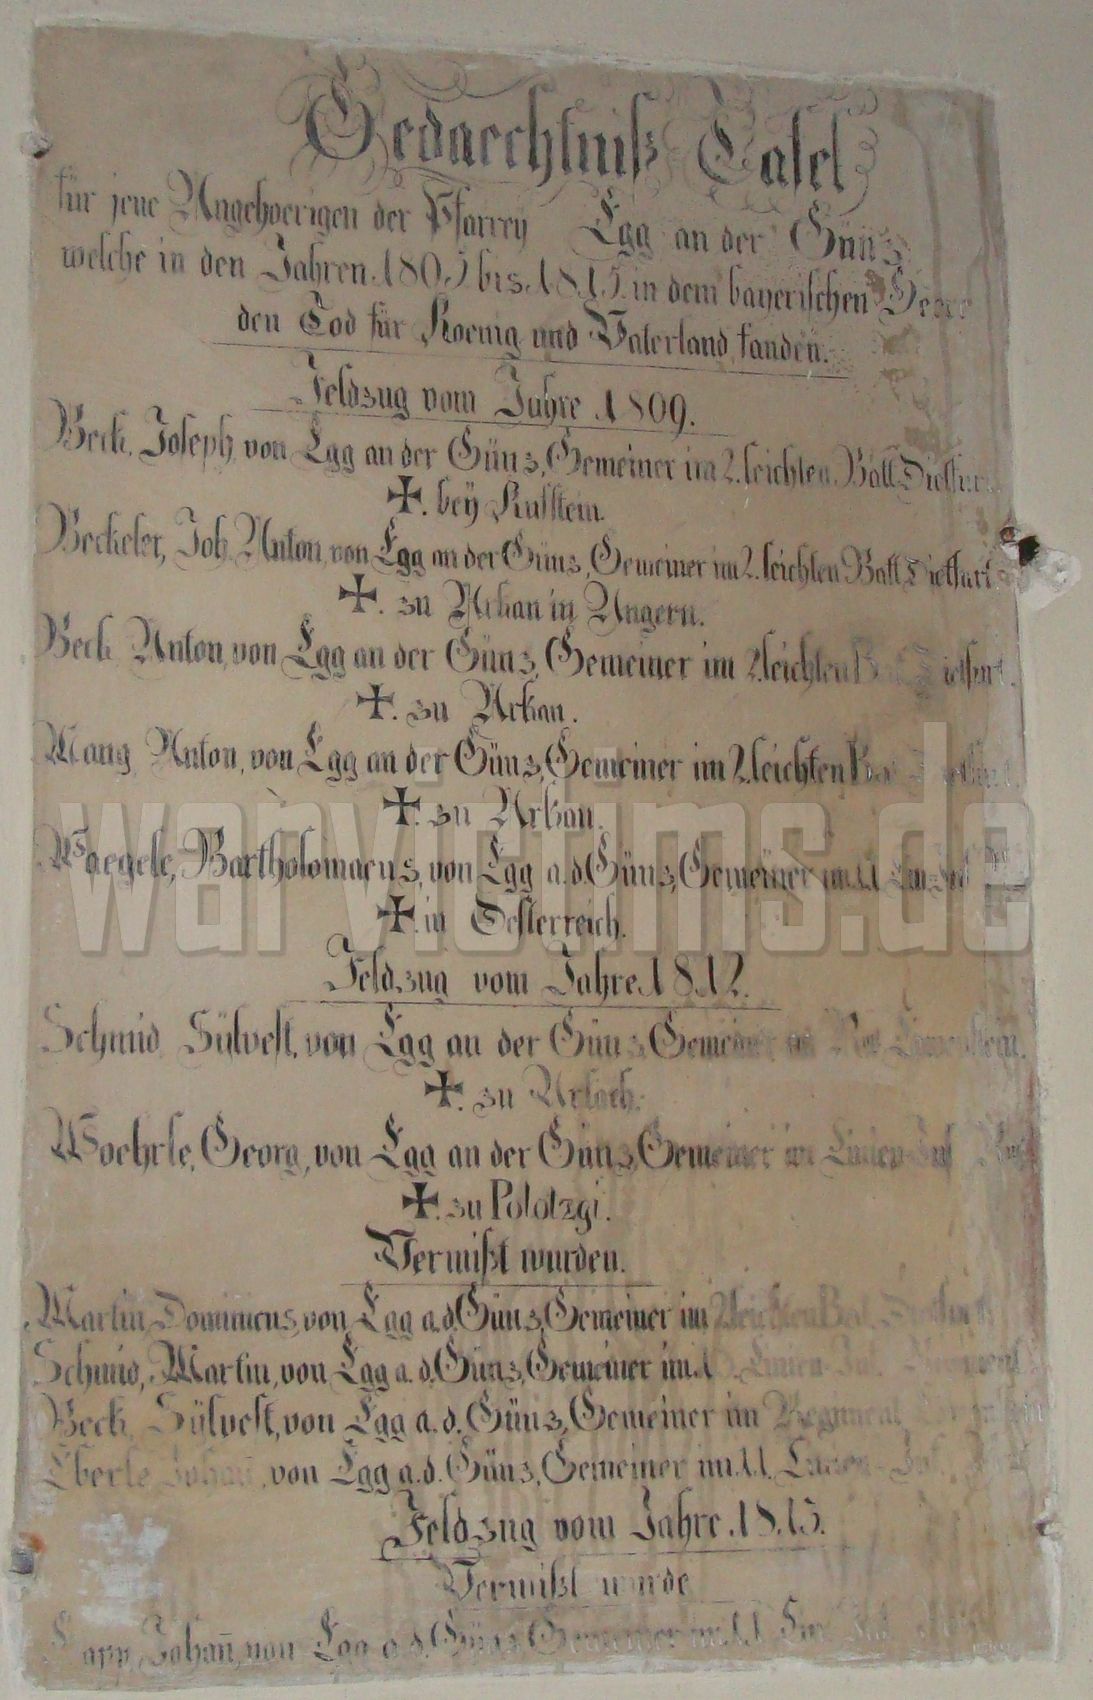 Gedaechtniß Tafel
für jene Angehoerigen der Pfarrey Egg an der Günz
welche in den Jahren 1805 bis 1815 in dem bayerischen Heere
den Tod für Koenig und Vaterland fanden.
Feldzug vom Jahre 1809.
Beck, Joseph, von Egg an der Günz, Gemeiner im 2. leichten Batl Dietfurt
✠. bey Kufstein.
Beckeler, Joh. Anton, von Egg an der Günz, Gemeiner im 2. leichten Batl Dietfurt
✠. zu Arkan in Ungern.
Beck Anton, von Egg an der Günz, Gemeiner im 2. leichten Bat. Dietfurt.
✠. zu Arkan.
Mang Anton, von Egg an der Günz, Gemeiner im 2. leichten Bat. Dietfurt.
✠. zu Arkan.
warvictims.de
Waegele, Bartholomaeus, von Egg a.d. Günz, Gemeiner im 11 Lin: Inf
✠. in Oesterreich.
Feldzug vom Jahre 1812.
Schmid Sülvest, von Egg an der Günz, Gemeiner im
✠. zu
Woehrle, Georg, von Egg an der Günz, Gemeiner im Linien Inf
✠. zu Polotzgi.
Vermißt wurden.
Martin Dominicus, von Egg a.d. Günz, Gemeiner im 2 leichten Bat. Dietfurt
Schmid, Martin, von Egg a. d. Günz, Gemeiner im Linien Inf. Regiment
Beck Sülvest, von Egg a. d. Günz, Gemeiner im Regiment
Eberle Johañ, von Egg a.d. Günz, Gemeiner im 11. Linien Inf.
Feldzug vom Jahre 1815.
Vermißt wurde
Johañ, von Egg a.d. Günz Gemeiner im 11 Lin Inf